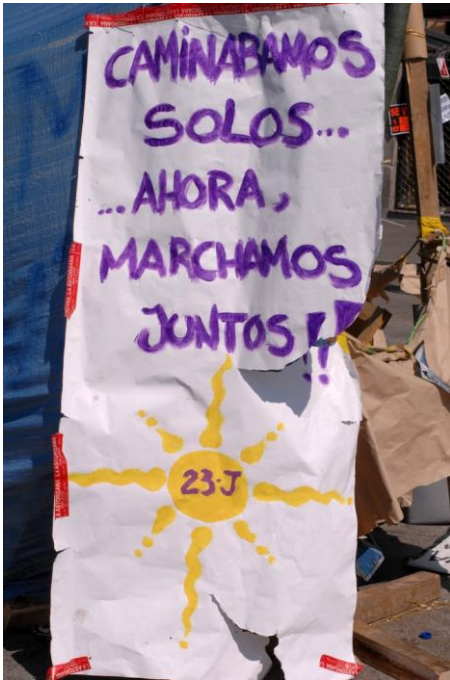 CAMINABAMOS
SOLOS...
...AHORA,
MARCHAMOS
JUNTOS!!
23-J